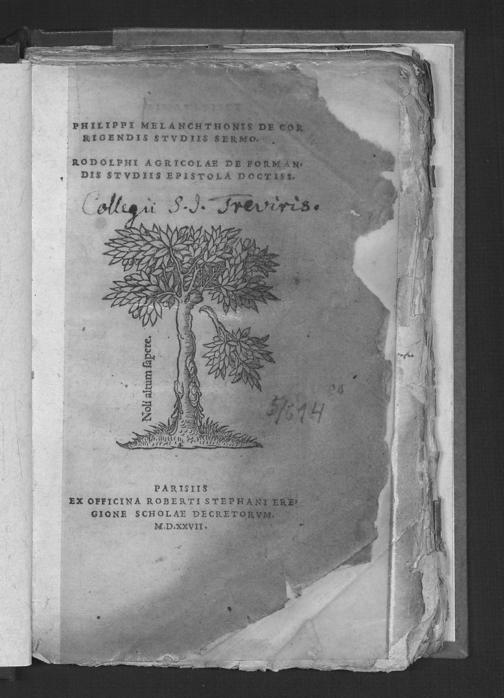 PHILIPPI MELANCHTHONIS DE COR
RIGENDIS STVDIIS SERMO.
RODOLPHI AGRICOLAE DE FORMAN-
DIS STVDIIS EPISTOLA DOCTISS.
Collegii S.J. Treviris.
Noli altum sapere.
PARISIIS
EX OFFICINA ROBERTI STEPHANI ERE-
GIONE SCHOLAE DECRETORVM.
M.D.XXVII.